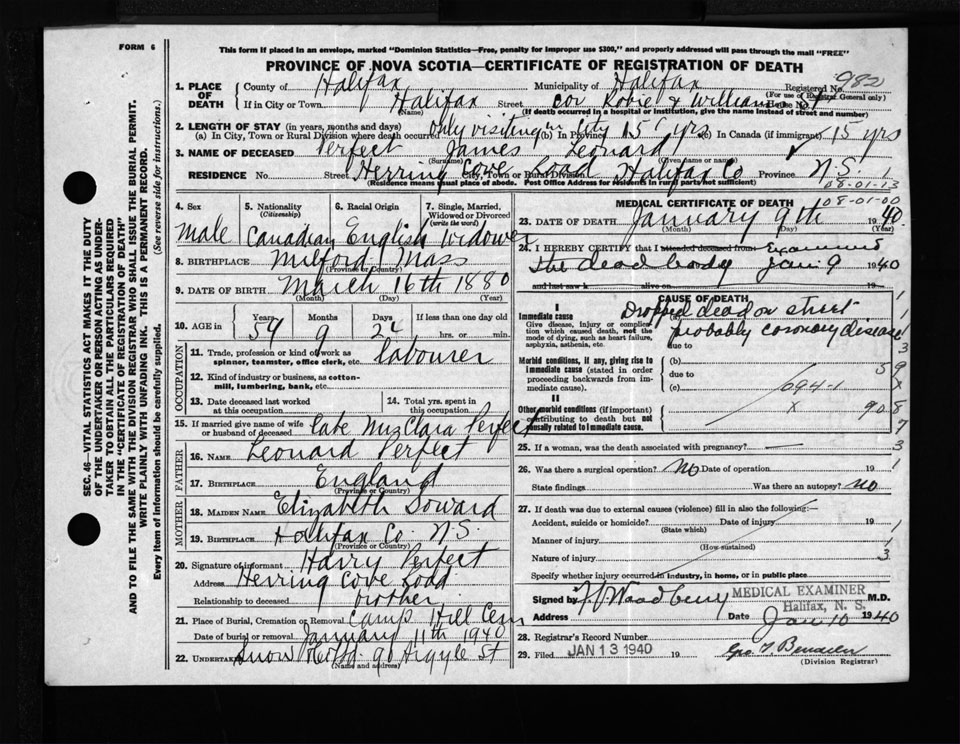 FORM 6
This form if placed in an envelope, marked "Dominion Statistics—Free, penalty for improper use $300," and properly addressed will pass through the mail "FREE"
PROVINCE OF NOVA SCOTIA—CERTIFICATE OF REGISTRATION OF DEATH
982
1. PLACE OF DEATH
County of Halifax Municipality of Halifax Registered No.
(For use of Registrar General only)
If in City or Town Halifax Street cor Robie & Williams St House No.
(Name) (If death occurred in a hospital or institution, give the name instead of street and number)
2. LENGTH OF STAY (in years, months and days)
(a) In City, Town or Rural Division where death occurred only visiting in City (b) In Province 15 yrs (c) In Canada (if immigrant) 15 yrs
3. NAME OF DECEASED Perfect James Leonard
(Surname) (Given name or names)
RESIDENCE No. Street Herring Cove Road City, Town or Rural Division Halifax Co Province N.S. 1
(Residence means usual place of abode. Post Office Address for Residents in rural parts not sufficient)
08-01-13
4. Sex Male
5. Nationality (Citizenship) Canadian
6. Racial Origin English
7. Single, Married, Widowed or Divorced (write the word) Widower
8. BIRTHPLACE Milford Mass
(Province or Country)
9. DATE OF BIRTH March 16th 1880
(Month) (Day) (Year)
10. AGE in Years Months Days If less than one day
59 9 24 hrs. or min.
OCCUPATION
11. Trade, profession or kind of work as spinner, teamster, office clerk, etc. labourer
12. Kind of industry or business, as cotton-mill, lumbering, bank, etc.
13. Date deceased last worked at this occupation
14. Total yrs. spent in this occupation
15. If married give name of wife or husband of deceased late Mrs Clara Perfect
FATHER
16. NAME Leonard Perfect
17. BIRTHPLACE England
(Province or Country)
MOTHER
18. MAIDEN NAME Elizabeth Soward
19. BIRTHPLACE Halifax Co N.S.
(Province or Country)
20. Signature of informant Harry Perfect
Address Herring Cove Road
Relationship to deceased brother
21. Place of Burial, Cremation or Removal Camp Hill Cem
Date of burial or removal January 11th 1940
22. UNDERTAKER Snow 90 Argyle St
(Name and address)
MEDICAL CERTIFICATE OF DEATH
08-01-00
23. DATE OF DEATH January 9th 1940
(Month) (Day) (Year)
24. I HEREBY CERTIFY that I attended deceased from Examined
the dead body Jan 9 1940
and last saw h alive on 19
CAUSE OF DEATH
I
Immediate cause
Give disease, injury or complication which caused death, not the mode of dying, such as heart failure, asphyxia, asthenia, etc.
(a) Dropped dead on street
probably coronary disease
due to
Morbid conditions, if any, giving rise to immediate cause (stated in order proceeding backwards from immediate cause).
(b)
due to
(c) 094-1
II
Other morbid conditions (if important) contributing to death but not causally related to immediate cause.
x
25. If a woman, was the death associated with pregnancy?
26. Was there a surgical operation? No Date of operation 19
State findings Was there an autopsy? no
27. If death was due to external causes (violence) fill in also the following:—
Accident, suicide or homicide? Date of injury 19
(State which)
Manner of injury
(How sustained)
Nature of injury
Specify whether injury occurred in industry, in home, or in public place
Signed by F.V. Woodbury MEDICAL EXAMINER M.D.
Halifax, N. S.
Address Date Jan 10 1940
28. Registrar's Record Number
29. Filed JAN 13 1940 19
(Division Registrar)
SEC. 46—VITAL STATISTICS ACT MAKES IT THE DUTY
OF THE UNDERTAKER OR PERSON ACTING AS UNDER-
TAKER TO OBTAIN ALL THE PARTICULARS REQUIRED
IN THE "CERTIFICATE OF REGISTRATION OF DEATH"
AND TO FILE THE SAME WITH THE DIVISION REGISTRAR WHO SHALL ISSUE THE BURIAL PERMIT.
WRITE PLAINLY WITH UNFADING INK. THIS IS A PERMANENT RECORD.
Every item of information should be carefully supplied. (See reverse side for instructions.)